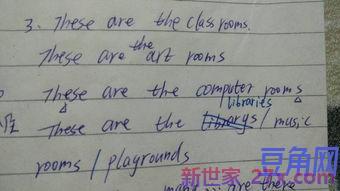 3. These are the classrooms.
These are the art rooms
These are the computer rooms
libraries
These are the librarys / music
rooms / playgrounds
are there
豆角网
新世家 27x.com